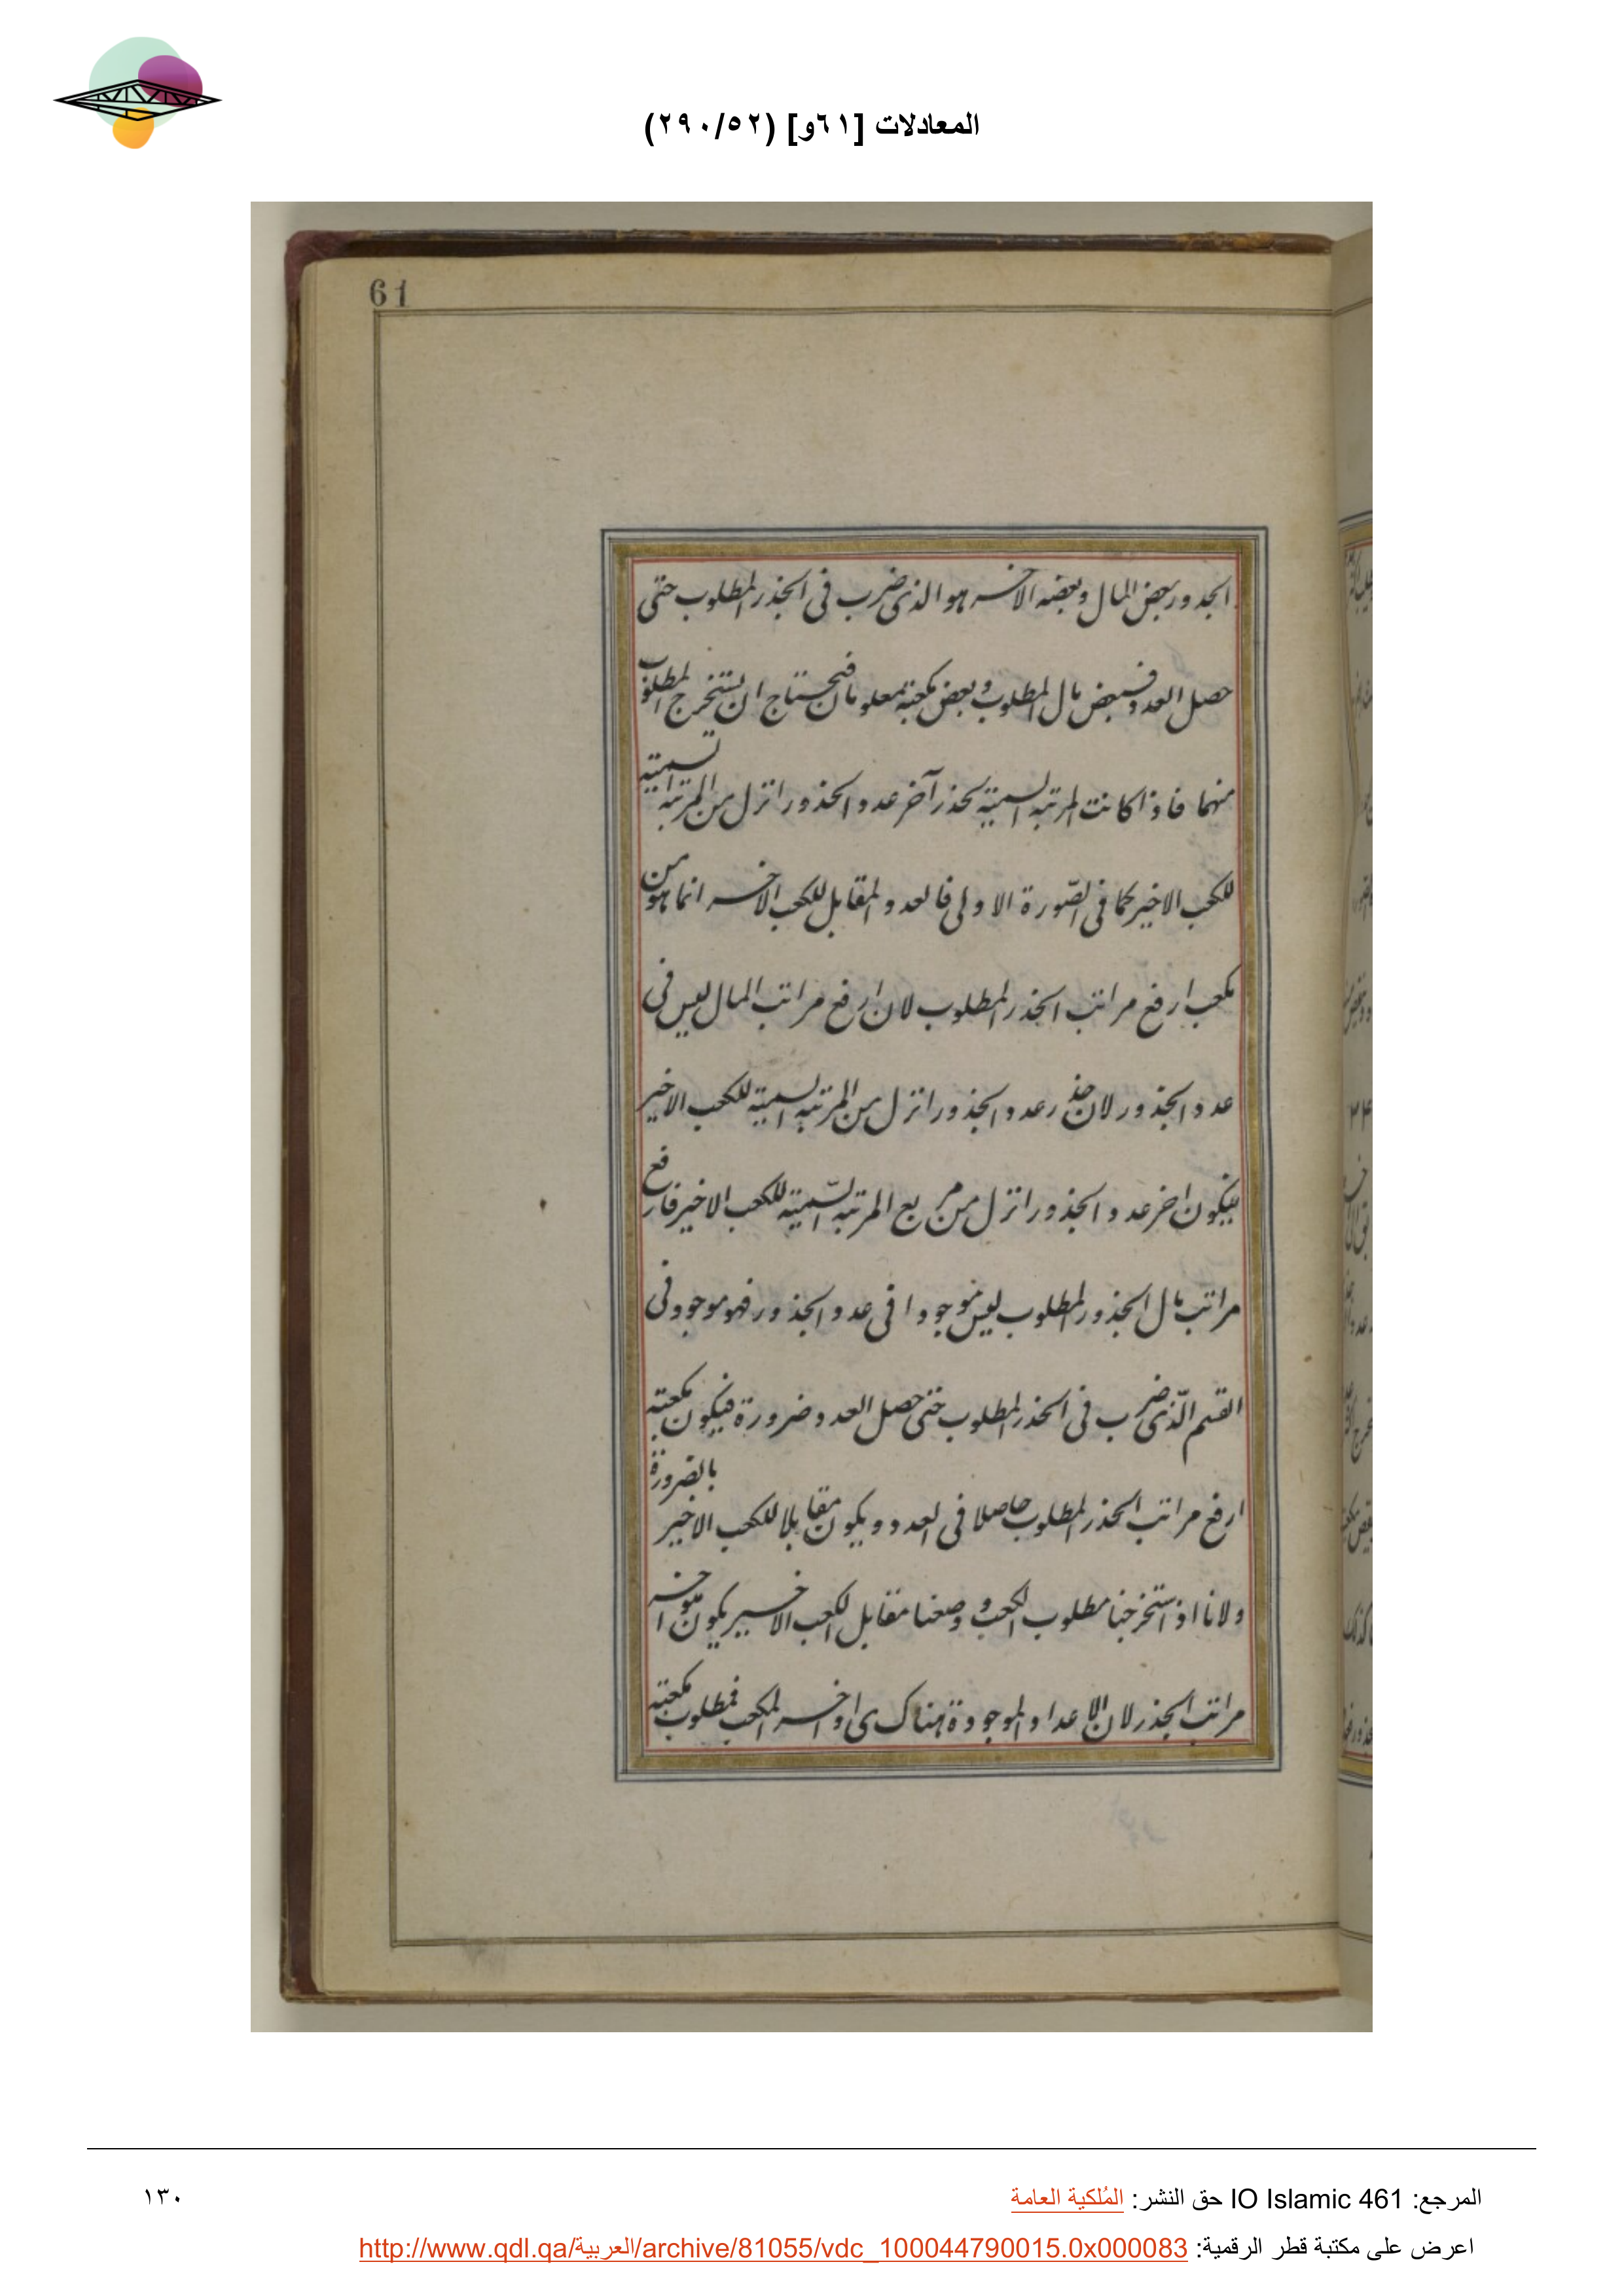 المعادلات [٦١و] (٢٩٠/٥٢)
61
الجدور بعض المال وبعضه الاخر هو الذى ضرب فى الجذر المطلوب حتى
حصل العدد فبعض مال المطلوب وبعض مكعبه معلومان فنحتاج ان نستخرج المطلوب
منهما فاذا كانت المرتبه السمية لجذر آخر عدد الجذور انزل من المرتبه السمية
للكعب الاخير كما فى الصّورة الاولى فالعدد المقابل للكعب الاخير انما هو من
مكعب ارفع مراتب الجذر المطلوب لان ارفع مراتب المال ليس فى
عدد الجذور لان جذر عدد الجذور انزل من المرتبه السمية للكعب الاخير
فيكون اخر عدد الجذور انزل من مربع المرتبه السّمية للكعب الاخير فارفع
مراتب مال الجذور المطلوب ليس موجودا فى عدد الجذور فهو موجود فى
القسم الّذى ضرب فى الجذر المطلوب حتى حصل العدد ضرورة فيكون مكعبه
ارفع مراتب الجذر المطلوب حاصلا فى العدد ويكون مقابلا للكعب الاخير بالضرورة
ولانا اذا استخرجنا مطلوب الكعب ووضعنا مقابل الكعب الاخير يكون هو اخر
مراتب الجذر لان الاعداد الموجودة هناك اواخر المكعب فمطلوب مكعبه
المرجع: IO Islamic 461 حق النشر: المُلكية العامة
١٣٠
اعرض على مكتبة قطر الرقمية: http://www.qdl.qa/العربية/archive/81055/vdc_100044790015.0x000083